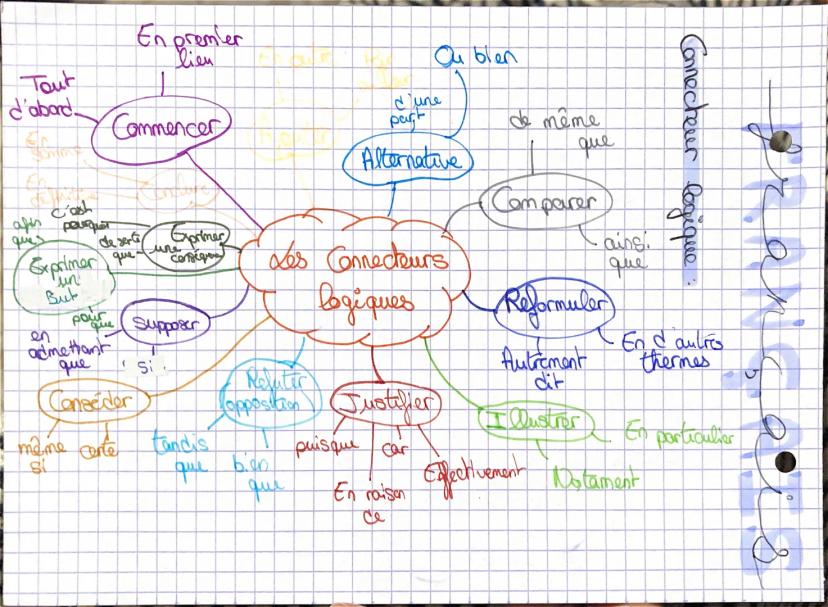 En premier
lieu
Tout
d'abord
Commencer
En outre
Ou bien
d'une
part
Alternative
de même
que
Comparer
ainsi
que
Connecteur logique :
français
FRANÇAIS
En
somme
En
Conclure
c'est
pourquoi
de sorte
que
Exprimer
une
afin
que
Exprimer
un
but
pour
que
Les Connecteurs
logiques
Supposer
en
admettant
que
si
Reformuler
Autrement
dit
En d'autres
thermes
Conséder
même
si
certe
Refuter
opposition
tandis
que
bien
que
Justifier
puisque
car
En raison
de
Effectivement
Illustrer
En particulier
Notament